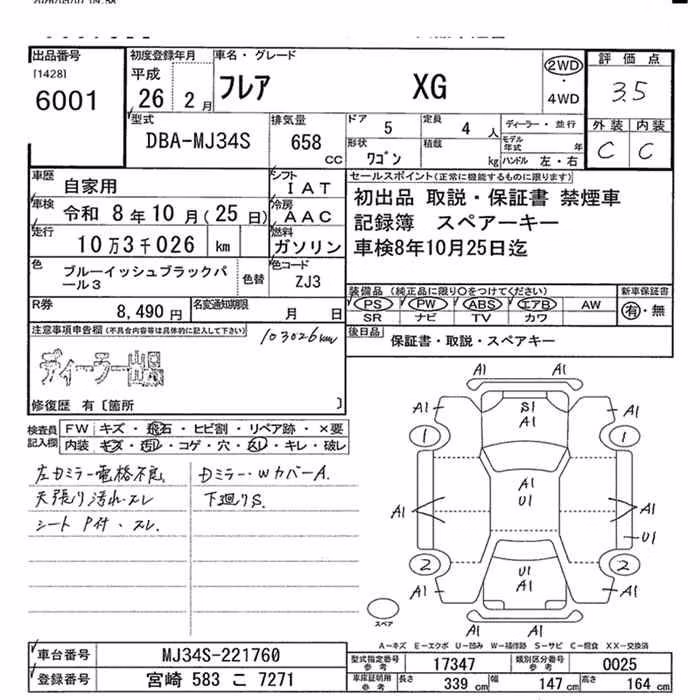 出品番号
[1428]
6001
初度登録年月
平成
26 年 2 月
車名・グレード
フレア XG
2WD
・
4WD
評価点
3.5
外装 内装
C C
型式
DBA-MJ34S
排気量
658 CC
ドア 5
定員 4 人
形状 ワゴン
積載 kg
ディーラー・並行
モデル年式 年
ハンドル 左・右
車歴 自家用
シフト IAT
車検 令和 8 年 10 月 (25 日)
冷房 AAC
走行 10 万 3 千 026 km
燃料 ガソリン
色 ブルーイッシュブラックパール3
色替
色コード ZJ3
R券 8,490 円
名変通知期限 月 日
セールスポイント(正常に機能するものに限ります)
初出品 取説・保証書 禁煙車
記録簿 スペアーキー
車検8年10月25日迄
装備品 (純正品に限り○をつけてください)
新車保証書
PS PW ABS エアB AW
SR ナビ TV カワ
有・無
後日品
保証書・取説・スペアキー
注意事項申告欄(不具合内容等は具体的に記入して下さい)
103026km
ディーラー出品
修復歴 有〔箇所 〕
検査員記入欄
FW キズ・飛石・ヒビ割・リペア跡・×要
内装 キズ・汚れ・コゲ・穴・スレ・キレ・破レ
左Dミラー電格不良
天張り汚れ・スレ
シート P付・スレ.
Dミラー・WカバーA.
下廻りS.
A1 A1
A1 S1 A1
A1
1 1
A1
U1
A1 A1
U1
2 2
U1
A1 A1 A1
A1 A1
スペア
A=キズ E=エクボ U=凹み W=補修跡 S=サビ C=腐食 XX=交換済
車台番号 MJ34S-221760
登録番号 宮崎 583 こ 7271
型式指定番号 参考 17347
類別区分番号 参考 0025
車庫証明用 参考 長さ 339 cm 幅 147 cm 高さ 164 cm